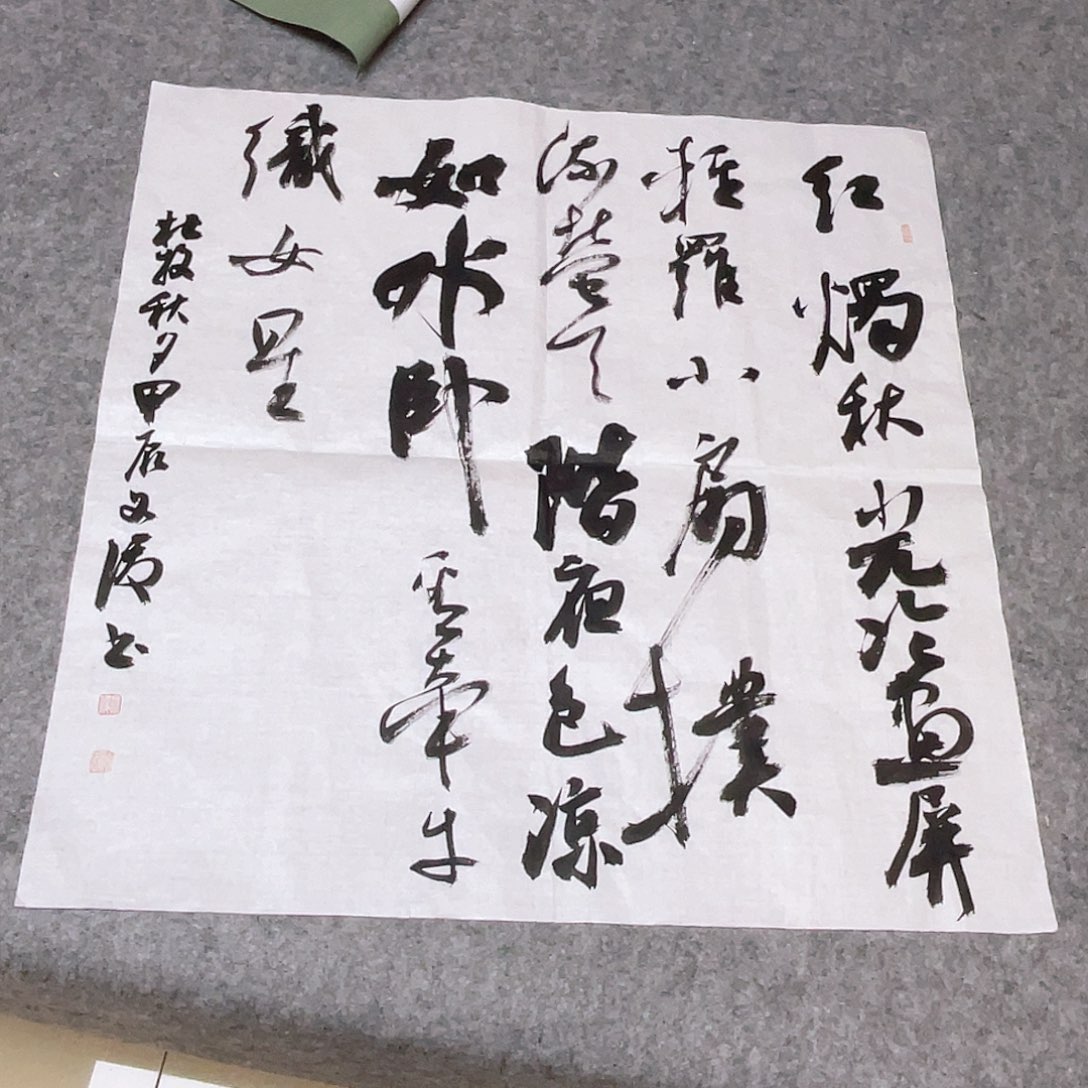 红燭秋光冷畫屏
輕羅小扇撲
流螢天階夜色凉
如水卧看牽牛
織女星
杜牧秋夕甲辰文书